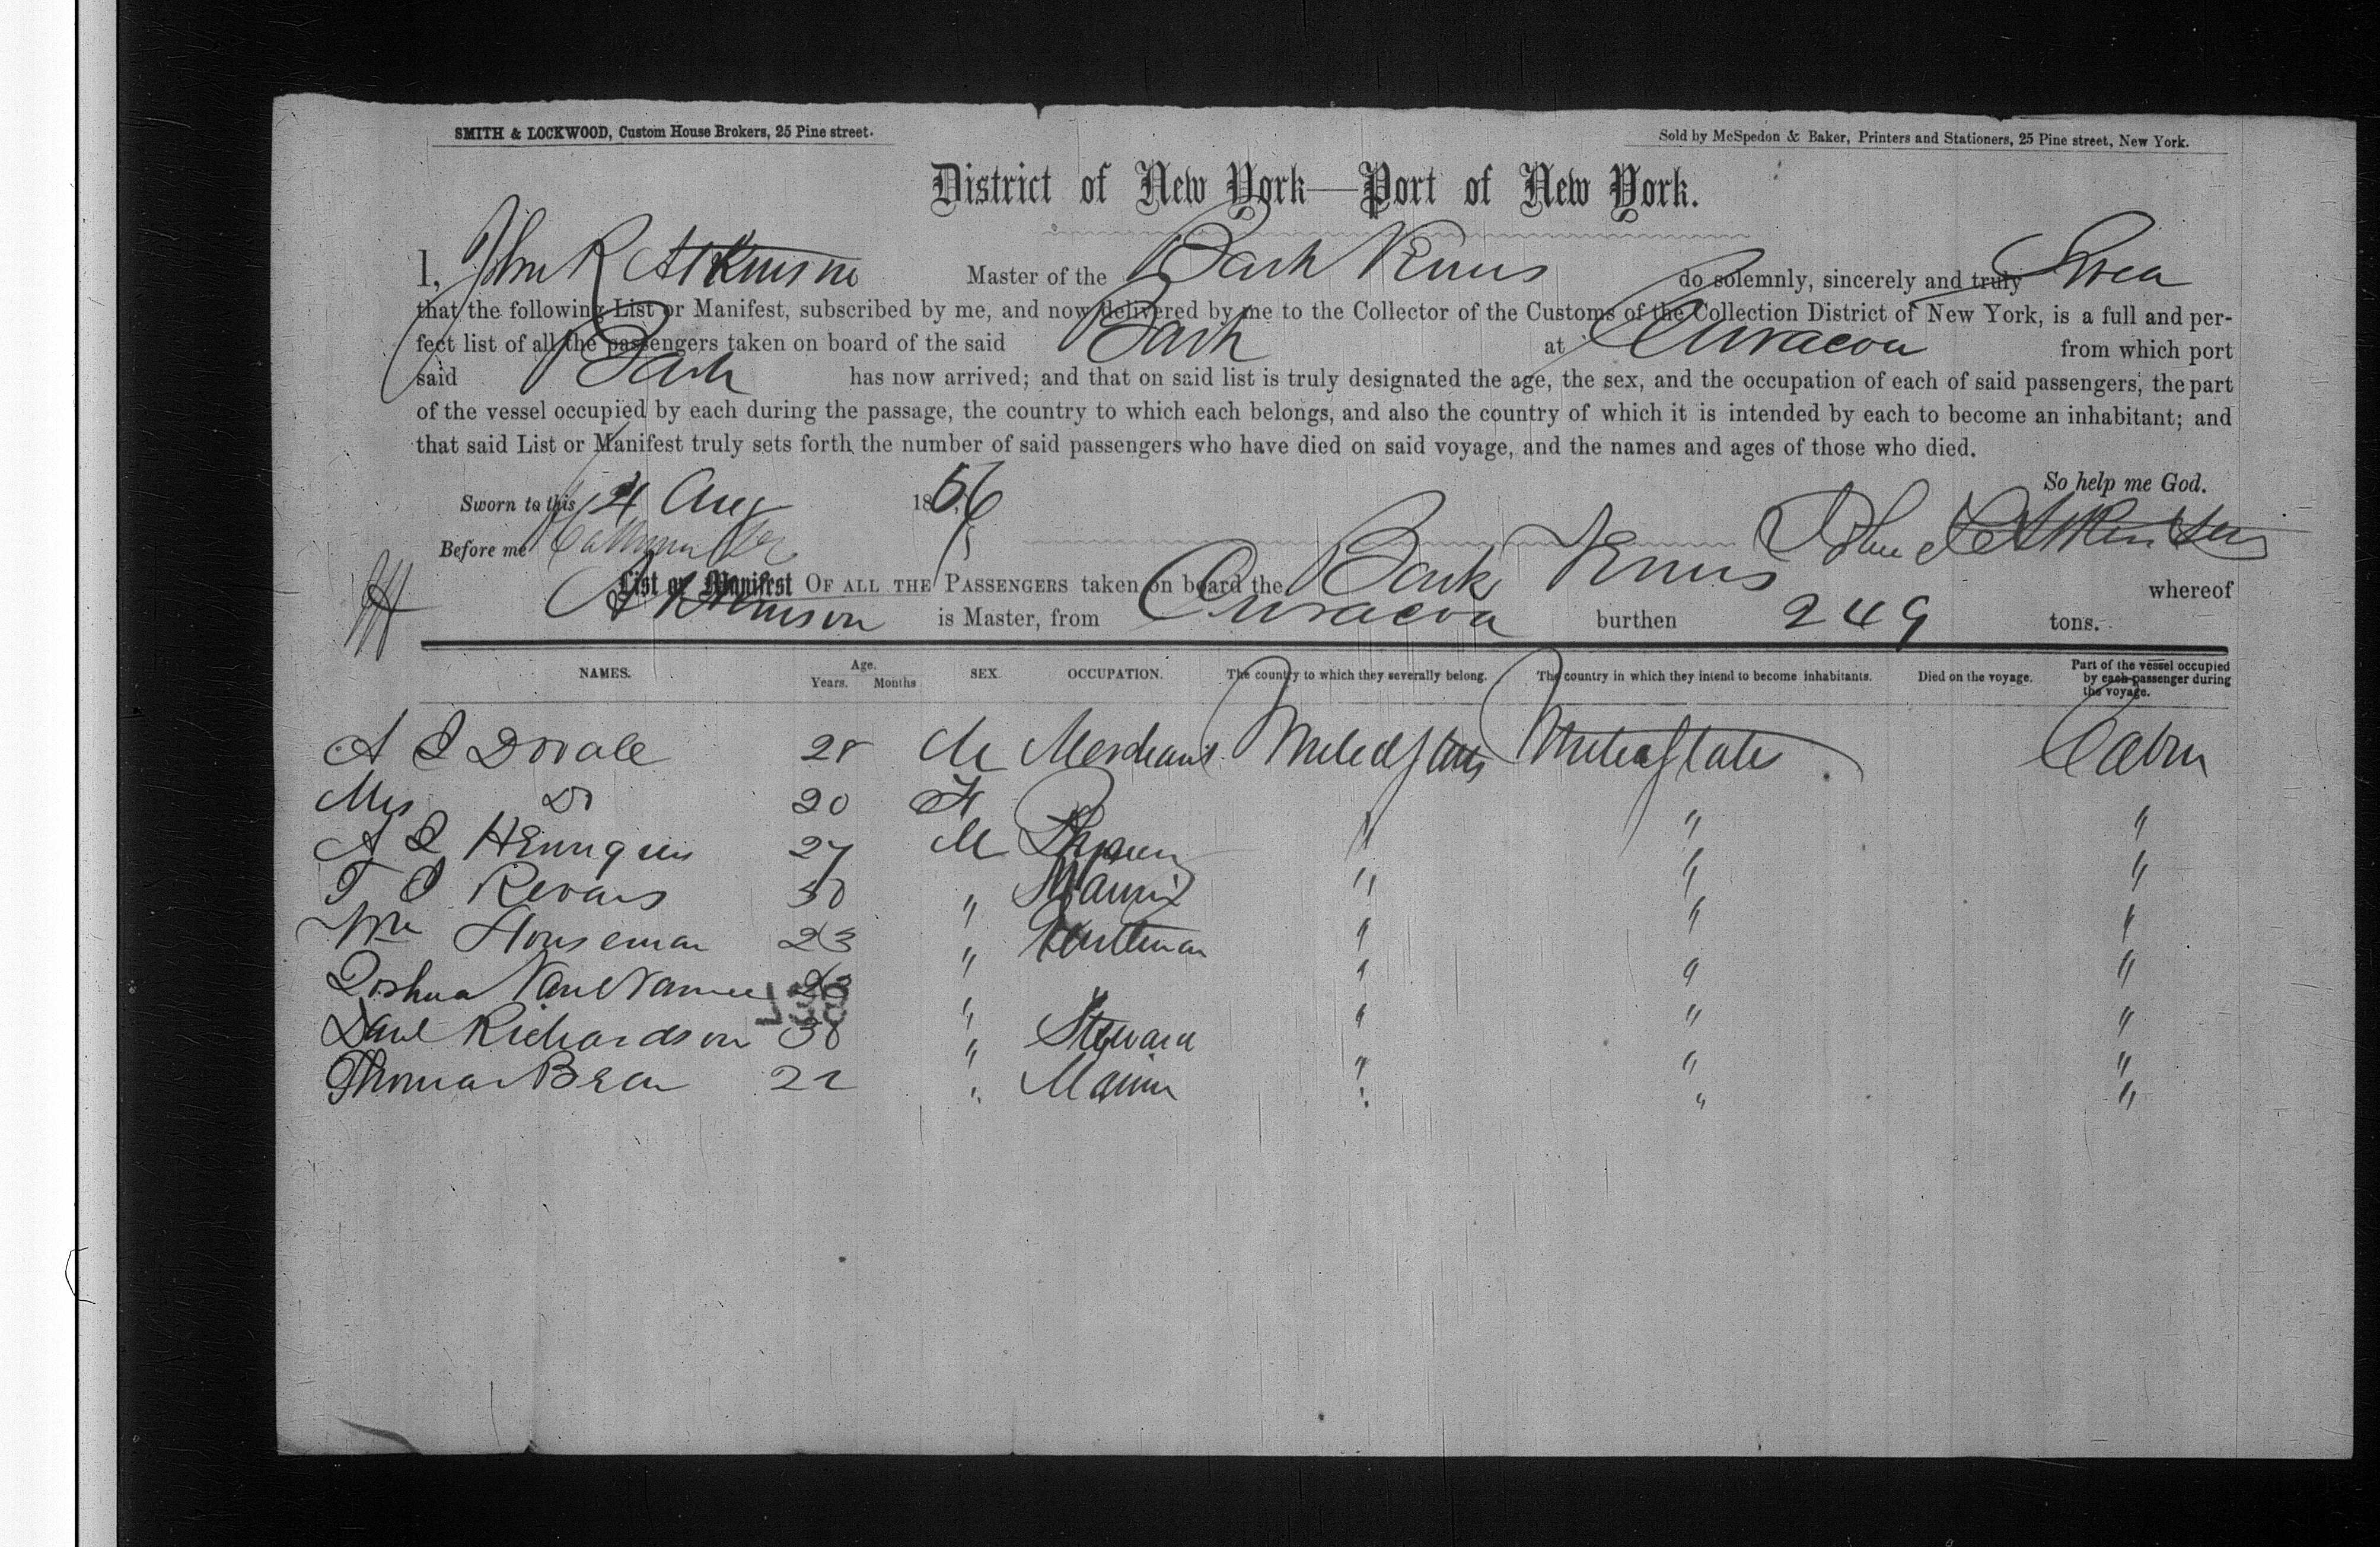 SMITH & LOCKWOOD, Custom House Brokers, 25 Pine street.
Sold by McSpedon & Baker, Printers and Stationers, 25 Pine street, New York.
District of New York—Port of New York.
I, John R Atkinson Master of the Bark Venus do solemnly, sincerely and truly Swear
that the following List or Manifest, subscribed by me, and now delivered by me to the Collector of the Customs of the Collection District of New York, is a full and per-
fect list of all the passengers taken on board of the said Bark at Curacoa from which port
said Bark has now arrived; and that on said list is truly designated the age, the sex, and the occupation of each of said passengers, the part
of the vessel occupied by each during the passage, the country to which each belongs, and also the country of which it is intended by each to become an inhabitant; and
that said List or Manifest truly sets forth the number of said passengers who have died on said voyage, and the names and ages of those who died.
So help me God.
Sworn to this 4 Aug 1856
Before me
John R Atkinson
List or Manifest OF ALL THE PASSENGERS taken on board the Bark Venus whereof
Atkinson is Master, from Curacoa burthen 249 tons.
NAMES. Age. Years. Months SEX. OCCUPATION. The country to which they severally belong. The country in which they intend to become inhabitants. Died on the voyage. Part of the vessel occupied by each passenger during the voyage.
A I Dovale 28 M Merchant United States United States Cabin
Mrs Do 20 F " " "
A I Henriquis 27 M " " "
T I Revars 30 " Marinr " " "
Wm Houseman 23 " Gentleman " " "
Joshua Van Namee 23 " " " "
Danl Richardson 38 " Steward " " "
Thomas Bean 22 " Marinr " " "